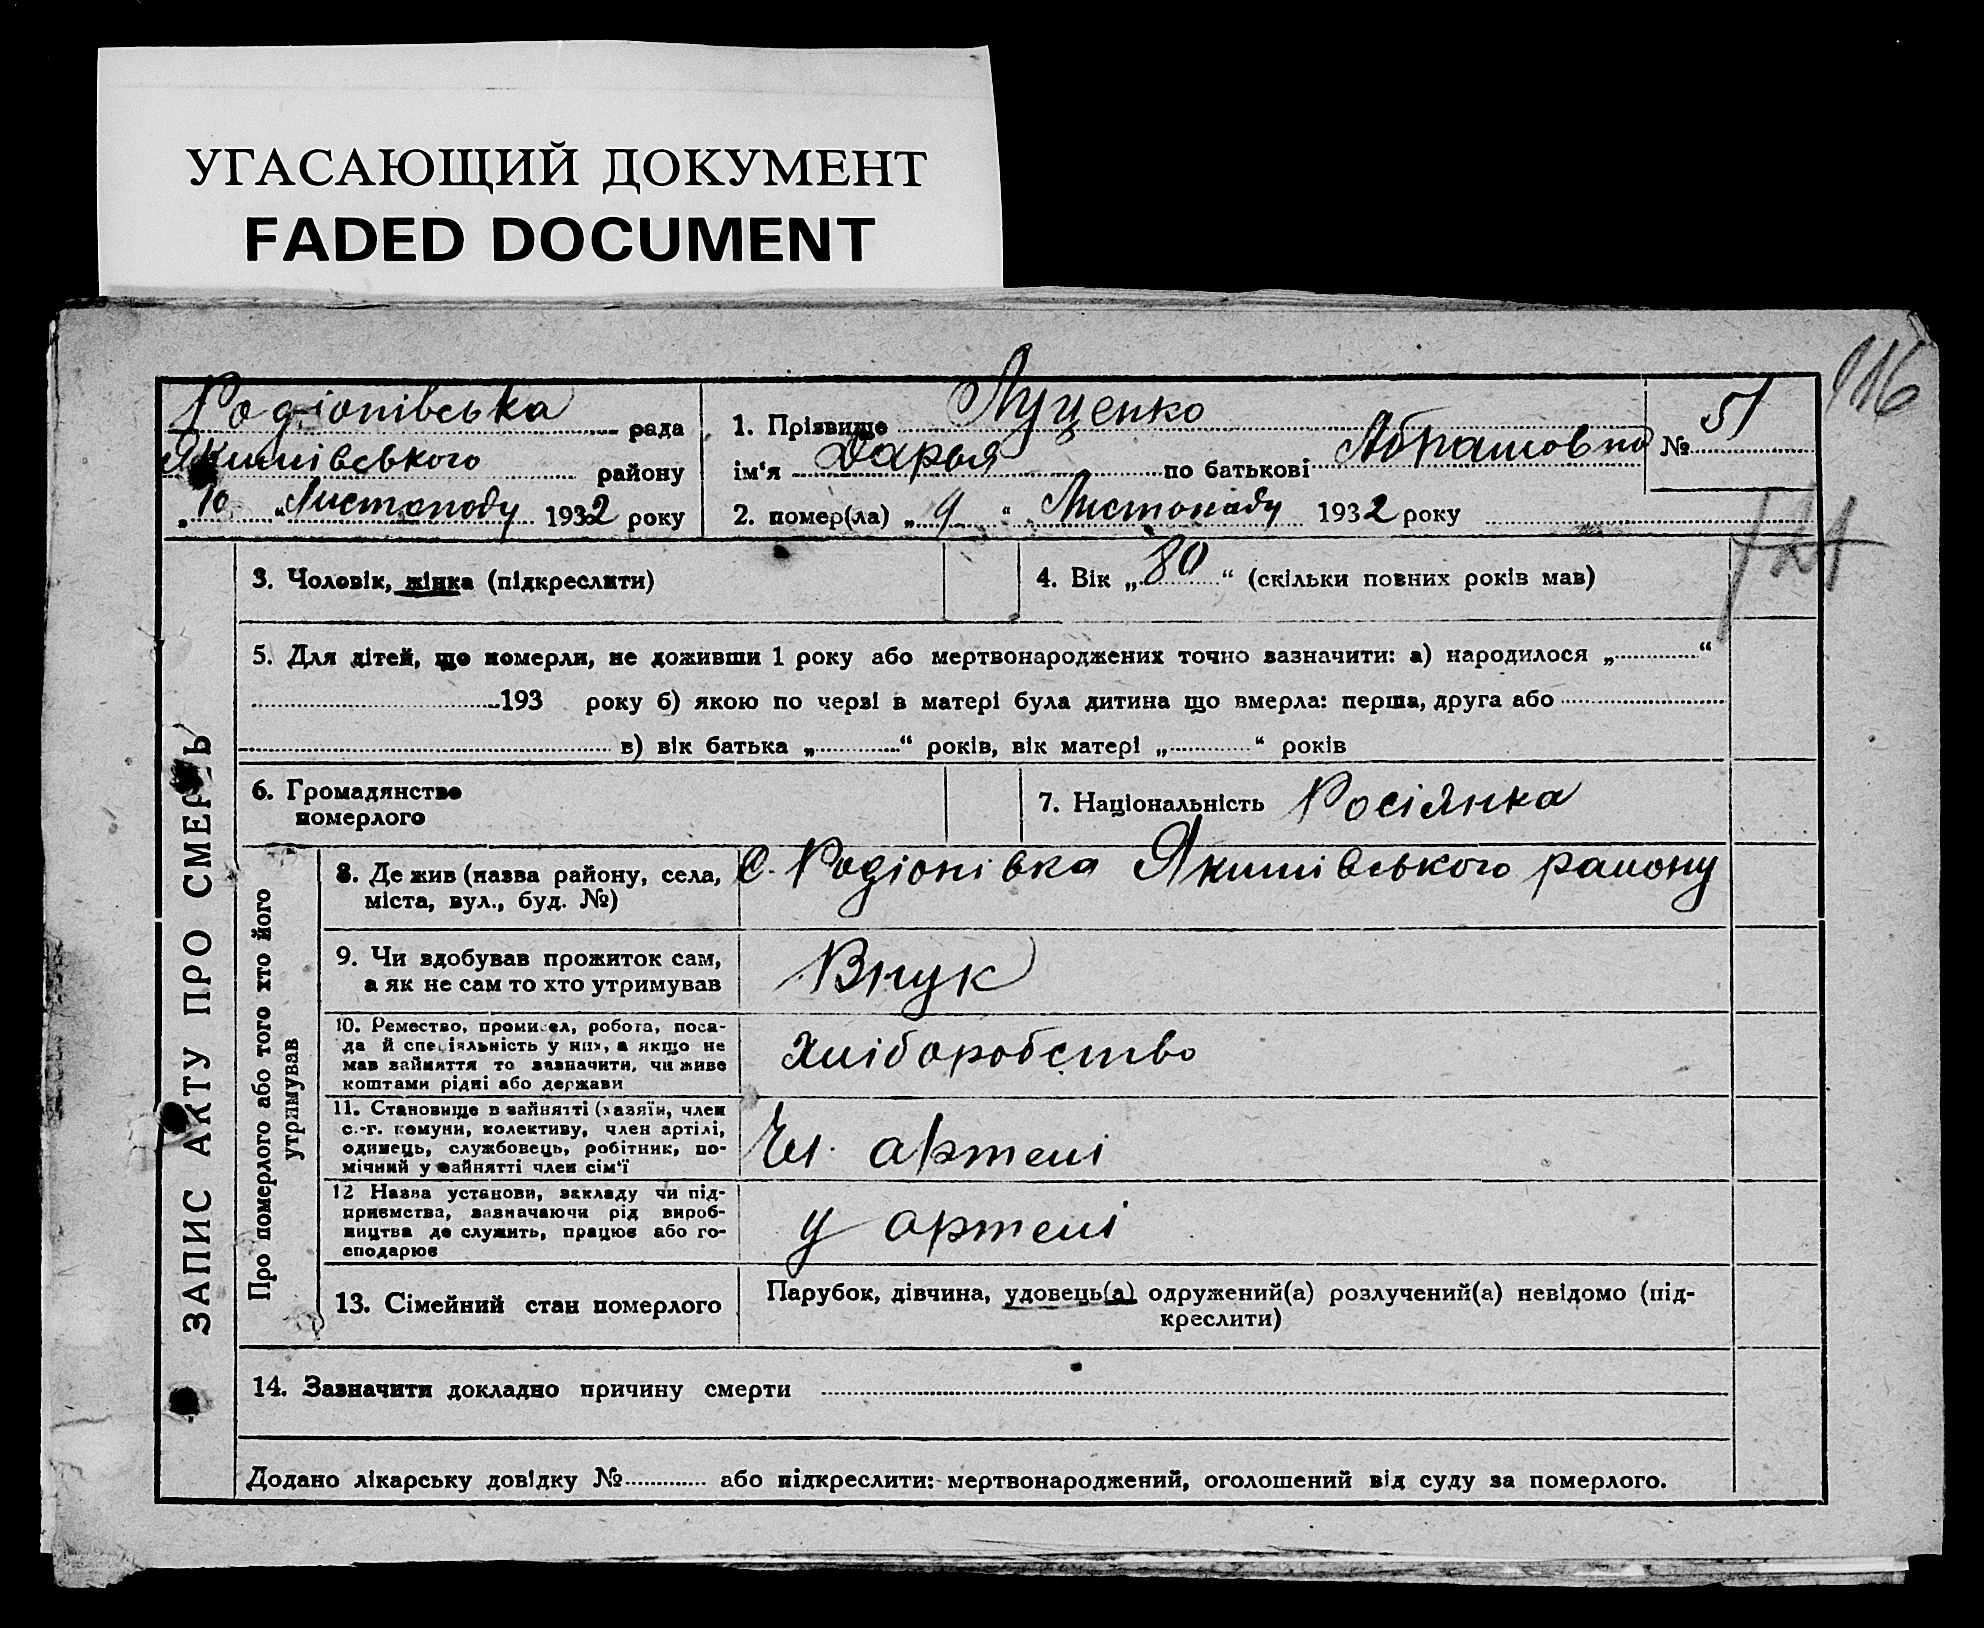 УГАСАЮЩИЙ ДОКУМЕНТ
FADED DOCUMENT
116
Родіонівська рада
Якимівського району
„10“ Листопаду 1932 року
1. Прізвище Луценко
ім‘я Дарья по батькові Абрамовна
2. помер(ла) „9“ Листопаду 1932 року
№ 51
ЗАПИС АКТУ ПРО СМЕРТЬ
3. Чоловік, жінка (підкреслити)
4. Вік „80“ (скільки повних років мав)
5. Для дітей, що померли, не доживши 1 року або мертвонароджених точно зазначити: а) народилося „ “
193 року б) якою по черзі в матері була дитина що вмерла: перша, друга або
в) вік батька „ “ років, вік матері „ “ років
6. Громадянство
померлого
7. Національність Росіянка
Про померлого або того хто його
утримував
8. Де жив (назва району, села,
міста, вул., буд. №)
С. Родіонівка Якимівського району
9. Чи вдобував прожиток сам,
а як не сам то хто утримував
Внук
10. Ремество, промисел, робота, поса-
да й спеціяльність у них, а якщо не
мав вайняття то зазначити, чи живе
коштами рідні або держави
Хліборобство
11. Становище в вайнятті (хазяїн, член
с.-г. комуни, колективу, член артілі,
одинець, службовець, робітник, по-
мічний у вайнятті член сім‘ї
Чл. артелі
12 Назва установи, закладу чи під-
приємства, зазначаючи рід вироб-
ництва де служить, працює або го-
сподарює
у артелі
13. Сімейний стан померлого
Парубок, дівчина, удовець(а) одружений(а) розлучений(а) невідомо (під-
креслити)
14. Зазначити докладно причину смерти
Додано лікарську довідку № або підкреслити: мертвонароджений, оголошений від суду за померлого.